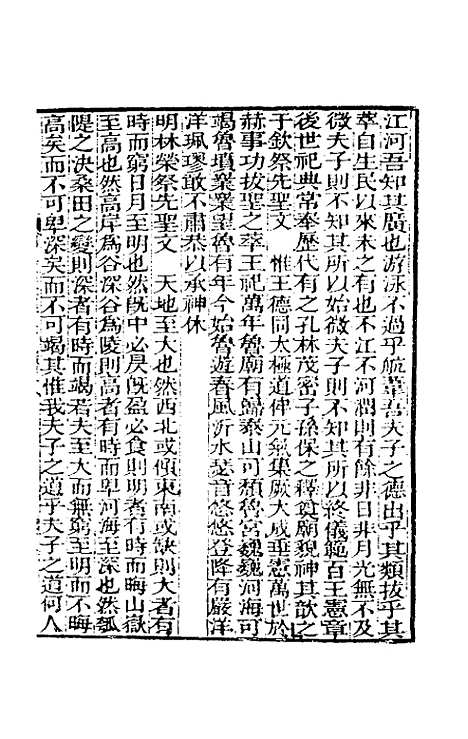 江河吾知其廣也游泳不過乎航葦吾夫子之德出乎其類拔乎其
萃自生民以來未之有也不江不河潤則有餘非日非月光無不及
微夫子則不知其所以始微夫子則不知其所以終儀範百王憲章
後世祀典常奉歷代有之孔林茂密子孫保之釋奠廟貌神其歆之
于欽祭先聖文　惟王德同太極道侔元氣集厥大成垂憲萬世於
赫事功拔聖之萃王祀萬年魯廟有歸泰山可頹魯宮巍巍河海可
竭魯瓊業業望魯有年今始魯遊春風沂水瑟音悠悠登降有嚴洋
洋珮璆敢不肅恭以承神休
明林榮祭先聖文　天地至大也然西北或傾東南或缺則大者有
時而窮日月至明也然既中必昃既盈必食則明者有時而晦山嶽
至高也然高岸為谷深谷為陵則高者有時而卑河海至深也然瓠
隄之決桑田之變則深者有時而竭若夫至大而無窮至明而不晦
高矣而不可卑深矣而不可竭其惟我夫子之道乎夫子之道何人